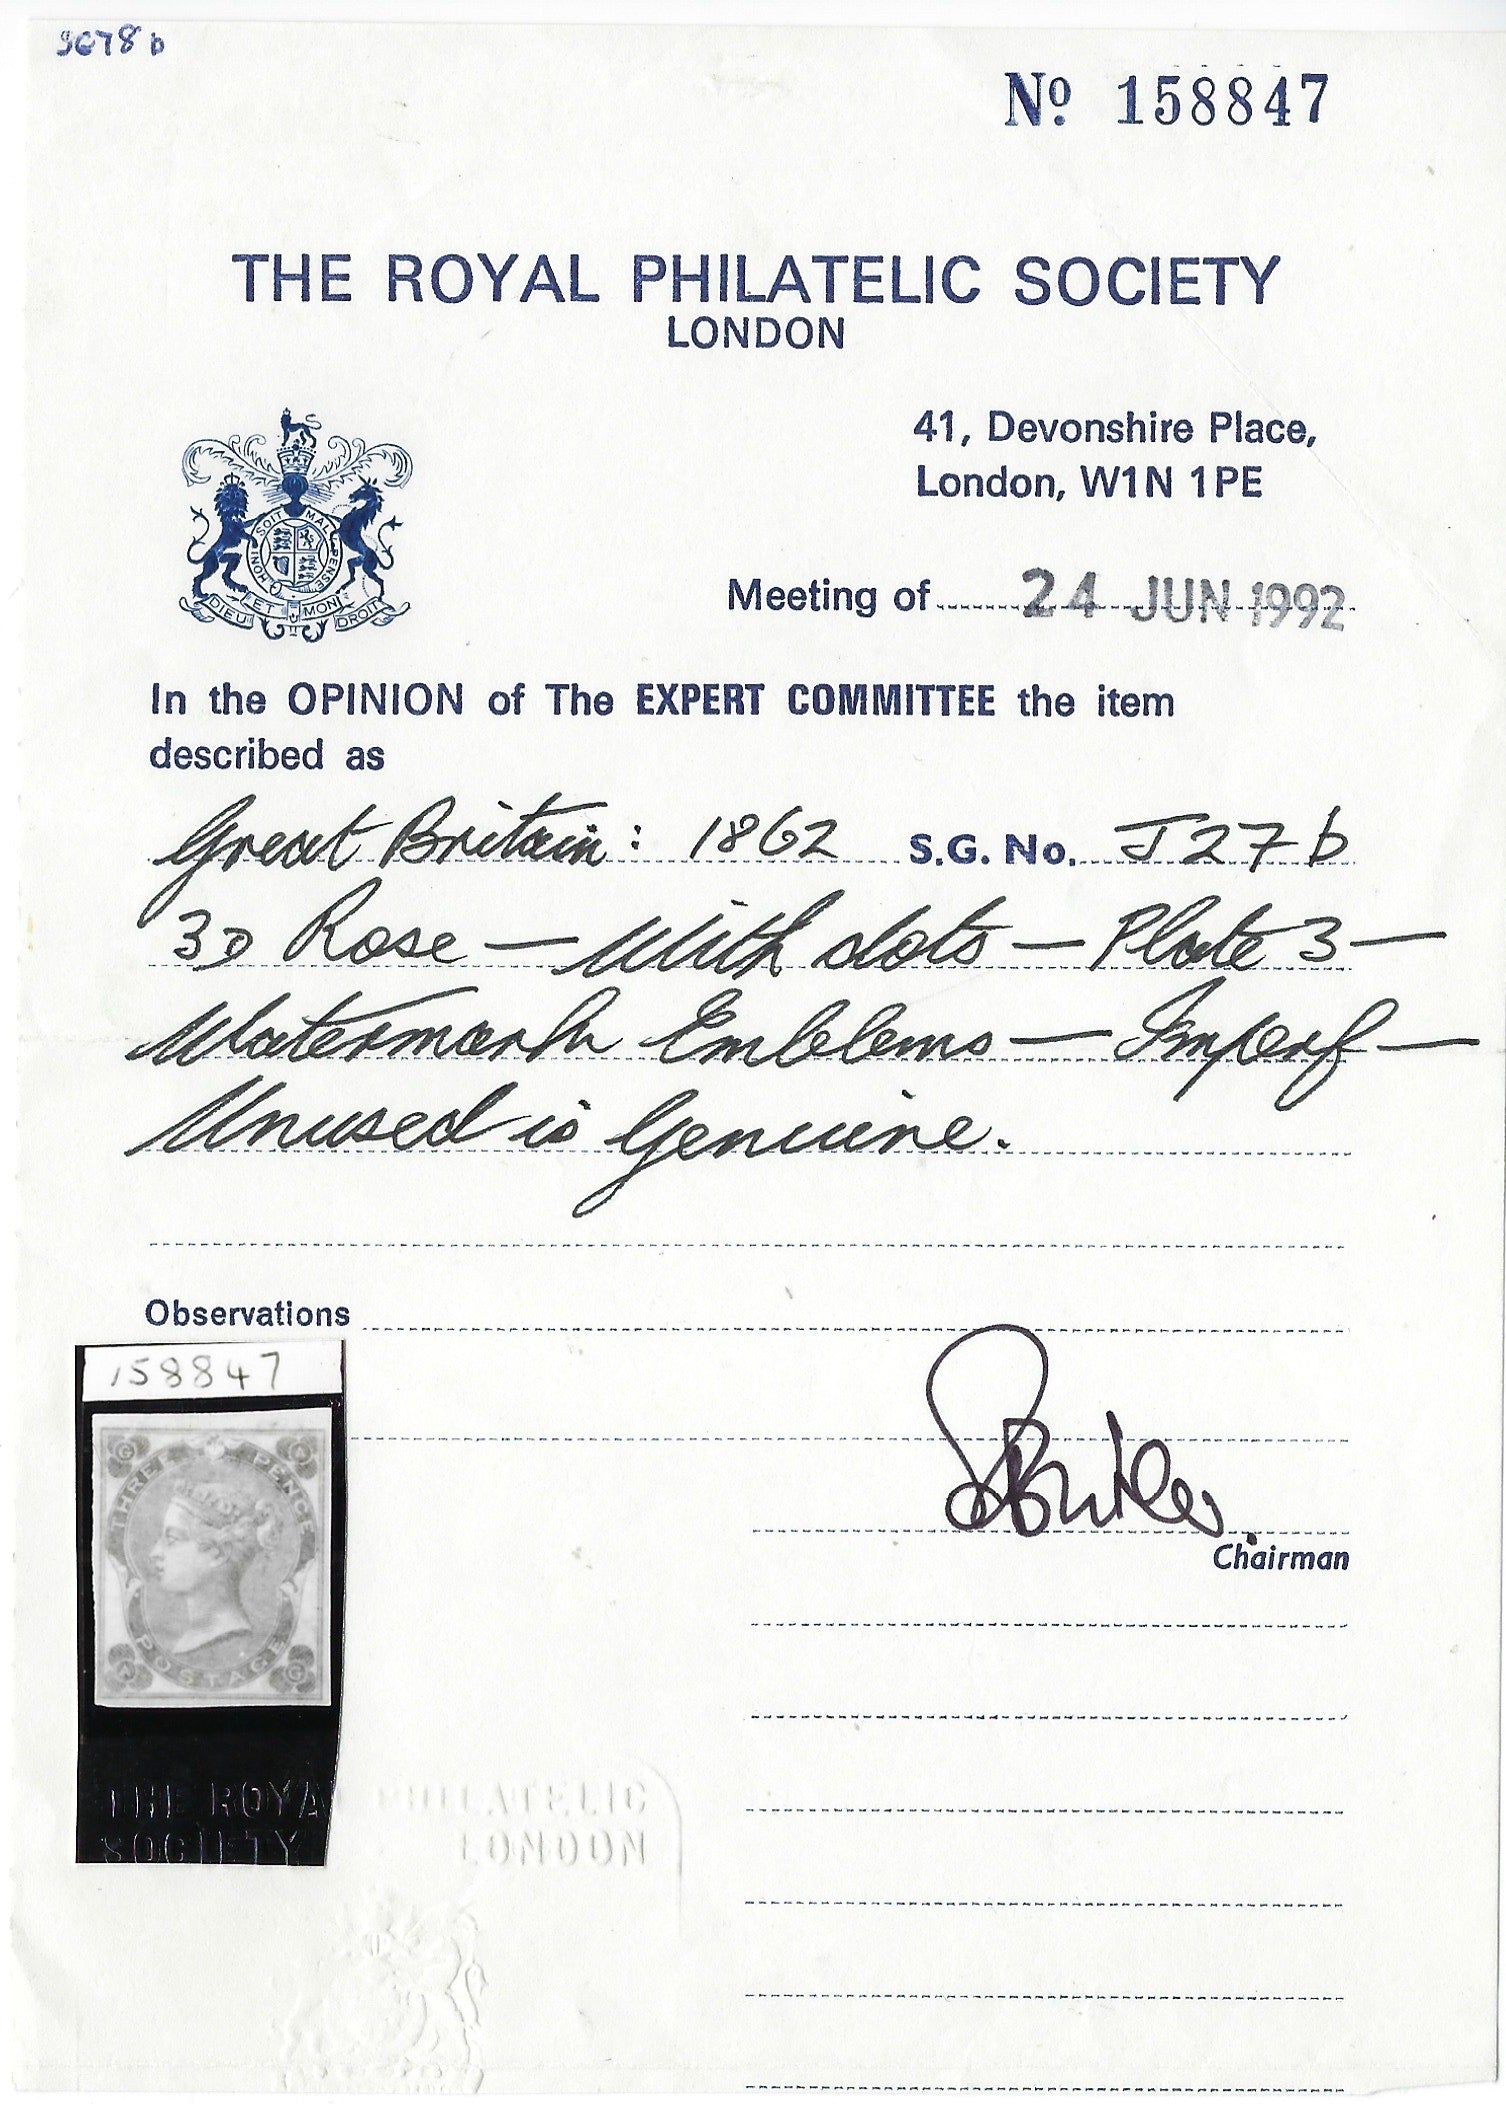 SG78b
Nº 158847
THE ROYAL PHILATELIC SOCIETY
LONDON
41, Devonshire Place,
London, W1N 1PE
SOIT MAL PENSE HONI
DIEU ET MON DROIT
Meeting of 24 JUN 1992
In the OPINION of The EXPERT COMMITTEE the item
described as
Great Britain: 1862 S.G. No. J27b
3D Rose — With dots — Plate 3 —
Watermark Emblems — Imperf —
Unused is Genuine.
Observations
158847
G A
THREE PENCE
POSTAGE
A G
Chairman
THE ROYAL PHILATELIC
SOCIETY LONDON